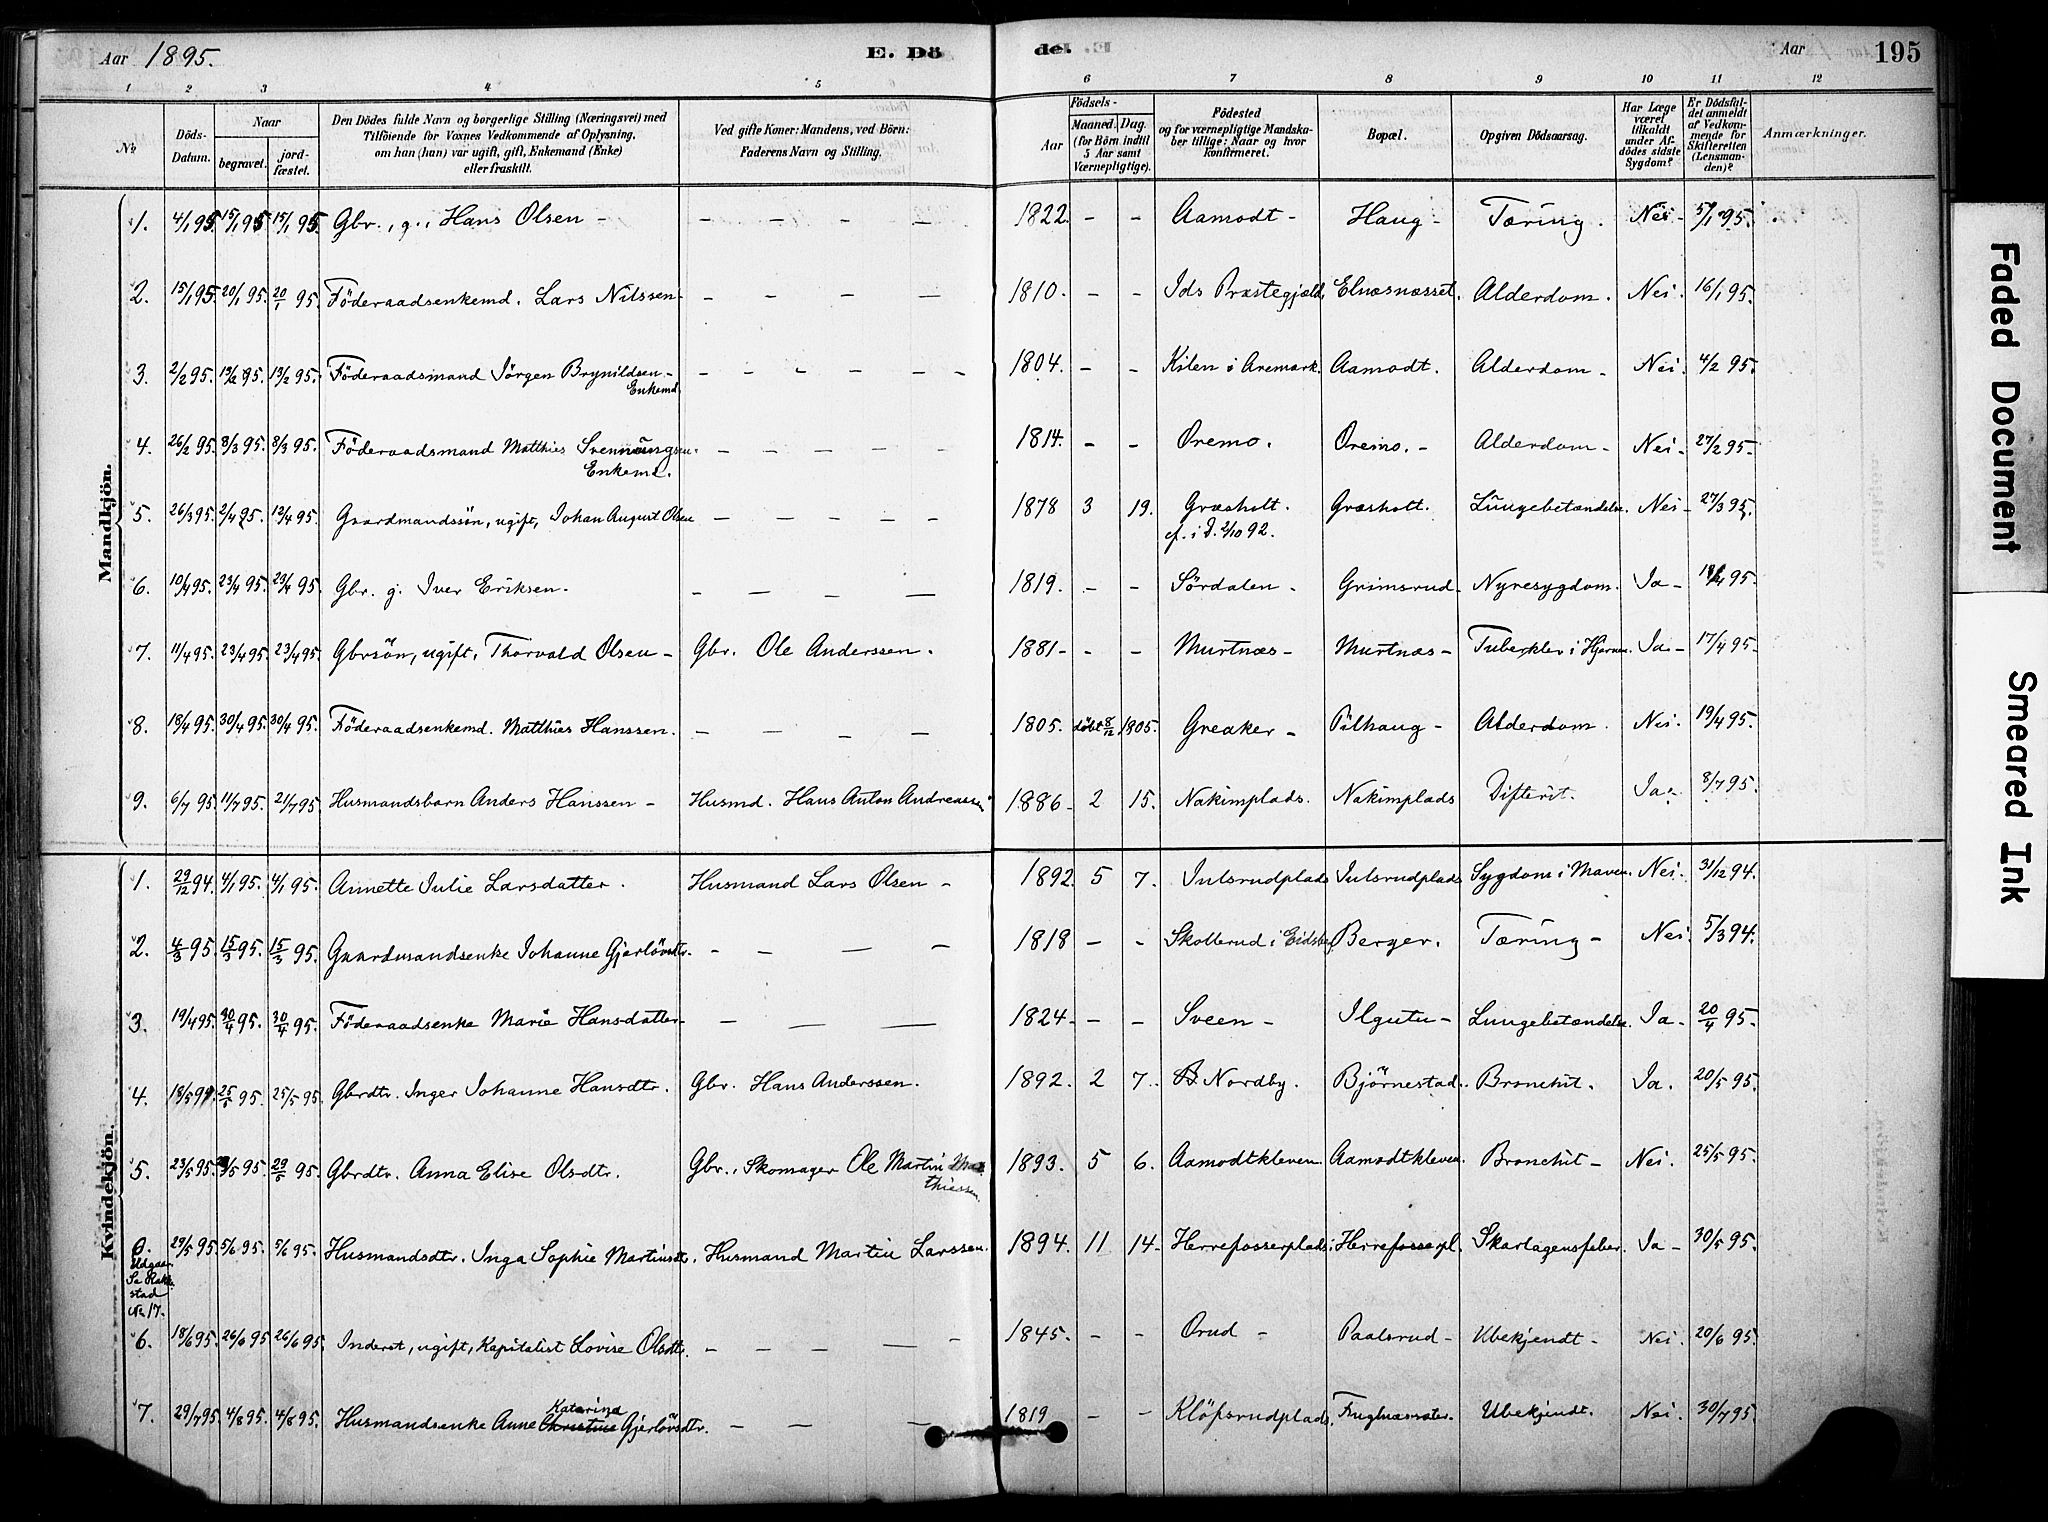 Aar 1895.
E. Döde.
Aar
195
1 2 3 4 5 6 7 8 9 10 11 12
No.
Döds-Datum.
Naar
begravet.
jordfæstet.
Den Dödes fulde Navn og borgerlige Stilling (Næringsvei) med
Tilföiende for Voxnes Vedkommende af Oplysning,
om han (hun) var ugift, gift, Enkemand (Enke)
eller fraskilt.
Ved gifte Koner: Mandens, ved Börn:
Faderens Navn og Stilling.
Födsels-
Aar
Maaned. Dag.
(for Börn indtil
5 Aar samt
Værnepligtige).
Födested
og for værnepligtige Mandskaber tillige: Naar og hvor
konfirmeret.
Bopæl.
Opgiven Dödsaarsag.
Har Læge været tilkaldt under Afdödes sidste Sygdom?
Er Dödsfaldet anmeldt af Vedkommende for Skifteretten (Lensmanden)?
Anmærkninger.
Mandkjön.
1. 4/1 95. 15/1 95. 15/1 95. Gbr., g., Hans Olsen - - - - - 1822. - - Aamodt - Haug - Tæring. Nei - 5/1 95.
2. 15/1 95. 20/1 95. 20/1 95. Föderaadsenkemd. Lars Nilssen - - - - - 1810. - - Ids Præstegjæld. Elnæsnæsset. Alderdom. Nei. 16/1 95.
3. 2/2 95. 13/2 95. 13/2 95. Föderaadsmand Jörgen Brynildsen - Enkemd. - - - - - - 1804. - - Kilen i Aremark. Aamodt. Alderdom - Nei. 4/2 95.
4. 26/2 95. 8/3 95. 8/3 95. Föderaadsmand Matthies Svenningsen. Enkemd. - - - - - 1814. - - Oremo. Oremo. - Alderdom - Nei - 27/2 95.
5. 26/3 95. 2/4 95. 12/4 95. Gaardmandssön, ugift, Johan August Olsen - - - - - 1878 3 19. Græsholt. cf. i D. 2/10 92. Græsholt. Lungebetændelse. Nei - 27/3 95.
6. 10/4 95. 23/4 95. 23/4 95. Gbr. g. Iver Eriksen. - - - - 1819. - - Sördalen - Grimsrud - Nyresygdom. Ja - /4 95.
7. 11/4 95. 23/4 95. 23/4 95. Gbrsön, ugift, Thorvald Olsen - Gbr. Ole Anderssen. 1881 - - - Murtnæs - Murtnæs - Tuberkler i Hjernen. Ja - 17/4 95.
8. 18/4 95. 30/4 95. 30/4 95. Föderaadsenkemd. Matthies Hanssen. - - - - 1805. döbt 8/12 1805. Greaker - Pilhaug - Alderdom. Nei. 19/4 95.
9. 6/7 95. 11/7 95. 21/7 95. Husmandsbarn Anders Hanssen - Husmd. Hans Anton Andreassen 1886 - 2 15. Nakimplads. Nakimplads Difterit. Ja. 8/7 95.
Kvindekjön.
1. 29/12 94. 4/1 95. 4/1 95. Annette Julie Larsdatter. Husmand Lars Olsen - 1892. 5 7. Julsrudplads Julsrudplads Sygdom i Maven. Nei. 31/12 94.
2. 4/3 95. 15/3 95. 15/3 95. Gaardmandsenke Johanne Gjerlövsdtr. - - - - 1818 - - Skollerud i Eidsberg Berger. Tæring - Nei. 5/3 94.
3. 19/4 95. 30/4 95. 30/4 95. Föderaadsenke Marie Hansdatter - - - - 1824 - - - Sveen - Ilgutu - Lungebetændelse. Ja - 20/4 95.
4. 18/5 95. 25/5 95. 25/5 95. Gbrdtr. Inger Johanne Hansdtr. Gbr. Hans Anderssen. 1892. 2 7. Nordby. Björnestad. Bronchit. Ja. 20/5 95.
5. 23/5 95. 29/5 95. 29/5 95. Gbrdtr. Anna Elise Olsdtr. Gbr., Skomager Ole Martin Matthiessen. 1893. 5 6. Aamodtkleven Aamodtkleven. Bronchit - Nei. 25/5 95.
0. Udgaar. Se Rakkestad No 17. 29/5 95. 5/6 95. 5/6 95. Husmandsdtr. Inga Sophie Martinsdtr. Husmand Martin Larssen. 1894. 11 14. Herrefosserplads. Herrefosserpl. Skarlagensfeber. Ja - 30/5 95.
6. 18/6 95. 26/6 95 26/6 95. Inderst, ugift, Kapitalist Lovise Olsdtr. - - - - - 1845. - - Orud - Paalsrud - Ubekjendt - Nei. 20/6 95.
7. 29/7 95. 4/8 95. 4/8 95. Husmandsenke Anne Christine Katarina Gjerlövsdtr. - - - 1819 - - Klöfsrudplads. Fuglnæssæter. Ubekjendt. Nei. 30/7 95.
Faded Document
Smeared Ink